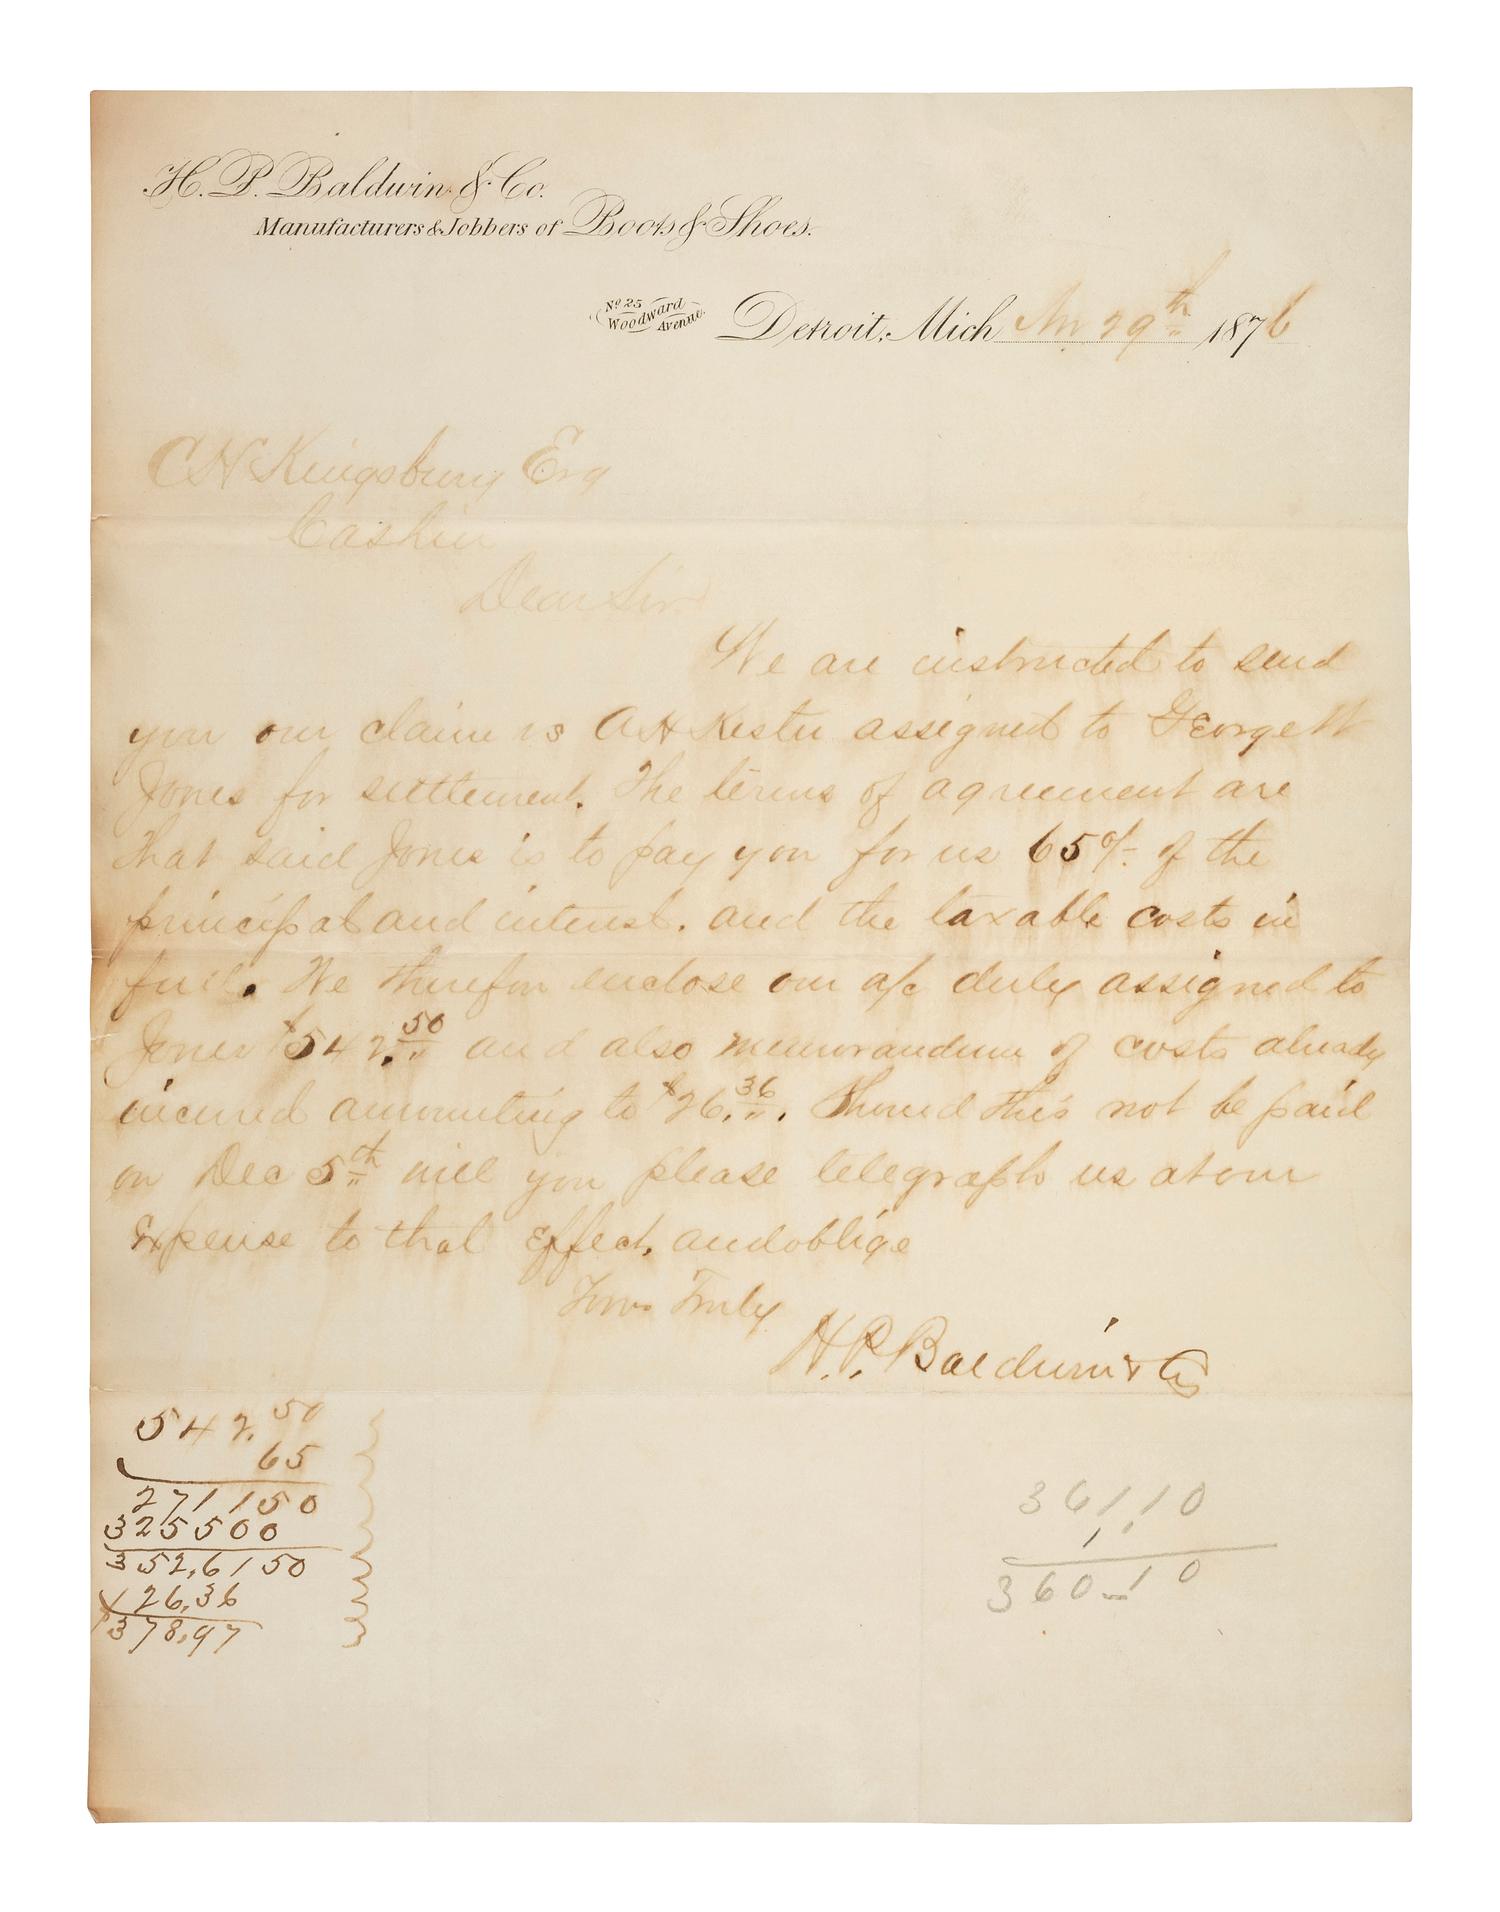 H. P. Baldwin & Co.
Manufacturers & Jobbers of Boots & Shoes.
No 25 Woodward Avenue.
Detroit, Mich Nov 29th 1876
C H Kingsbury Esq
Cashier
Dear Sir
We are instructed to send
you our claim vs A H Kester assigned to George W
Jones for settlement. The terms of agreement are
that said Jones is to pay you for us 65% of the
principal and interest. and the taxable costs in
full. We therefor enclose our a/c duly assigned to
Jones $542.50 and also memorandum of costs already
incured amounting to $26.36. Should this not be paid
on Dec 5th will you please telegraph us at our
Expense to that effect. and oblige
Yours Truly
H. P. Baldwin & Co
542.50
65
271150
325500
352,6150
26,36
$378,97
361,10
1,
360-10